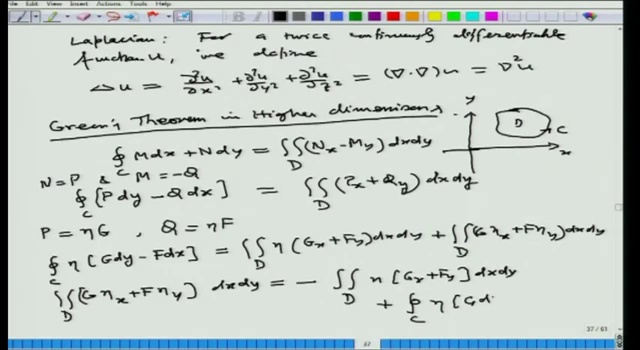 File Edit View Insert Actions Tools Help
Laplacian: For a twice continuously differentiable
function u, we define
Δu = ∂²u/∂x² + ∂²u/∂y² + ∂²u/∂z² = (∇·∇)u = ∇²u
Green's Theorem in Higher dimensions
y
D
C
x
∮_C Mdx + Ndy = ∬_D (N_x - M_y) dxdy
N = P & M = -Q
∮_C [P dy - Q dx] = ∬_D (P_x + Q_y) dxdy
P = ηG , Q = ηF
∮_C η [G dy - F dx] = ∬_D η (G_x + F_y) dxdy + ∬_D (G η_x + F η_y) dxdy
∬_D [G η_x + F η_y] dxdy = - ∬_D η [G_x + F_y] dxdy
+ ∮_C η [G d
37 / 61
37